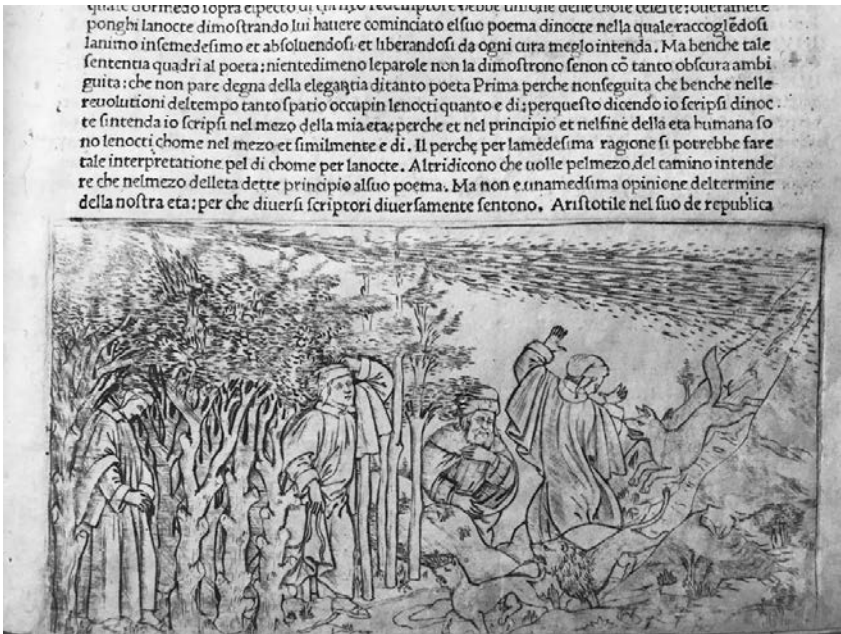 quale dormēdo ſopra elpecto di redemptore hebbe uiſione delle choſe celeſte: oueramēte
ponghi lanocte dimoſtrando lui hauere cominciato elſuo poema dinocte nella quale raccoglēdoſi
lanimo inſemedeſimo et abſoluendoſi et liberandoſi da ogni cura meglo intenda. Ma benche tale
ſententia quadri al poeta: nientedimeno leparole non la dimoſtrono ſenon cō tanto obſcura ambi
guita: che non pare degna della elegantia ditanto poeta Prima perche nonſeguita che benche nelle
reuolutioni deltempo tanto ſpatio occupin lenocti quanto e di: perqueſto dicendo io ſcripſi dinoc
te ſintenda io ſcripſi nel mezo della mia eta: perche et nel principio et nelfine della eta humana ſo
no lenocti chome nel mezo et ſimilmente e di. Il perche per lamedeſima ragione ſi potrebbe fare
tale interpretatione pel di chome per lanocte. Altridicono che uolle pelmezo del camino intende
re che nelmezo delleta dette principio alſuo poema. Ma non e unamedſima opinione deltermine
della noſtra eta: per che diuerſi ſcriptori diuerſamente ſentono. Ariſtotile nel ſuo de republica